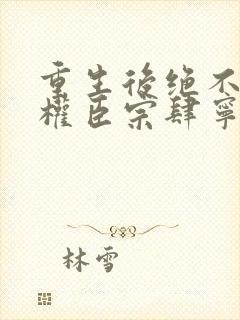 重生後绝不
權臣宗肆寧
林雪